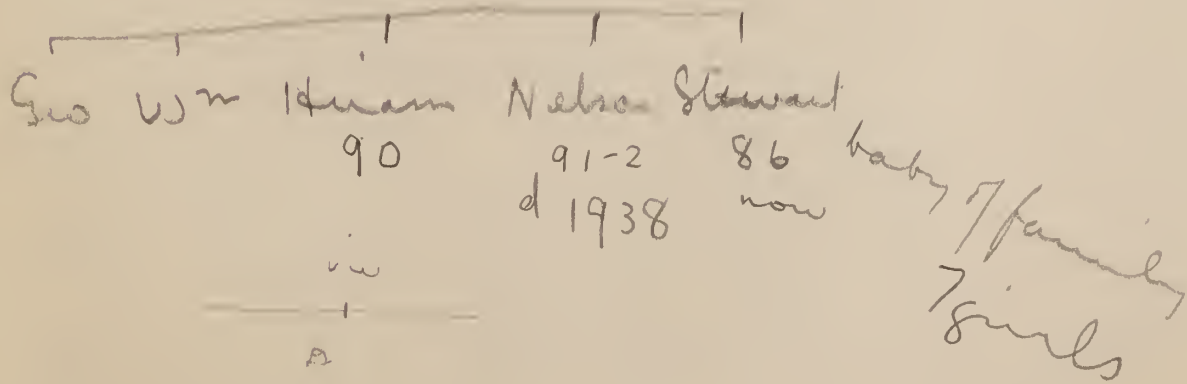 Geo Wm Hiram Nelson Stewart
90 91-2 86 baby of family
d 1938 now
7 girls